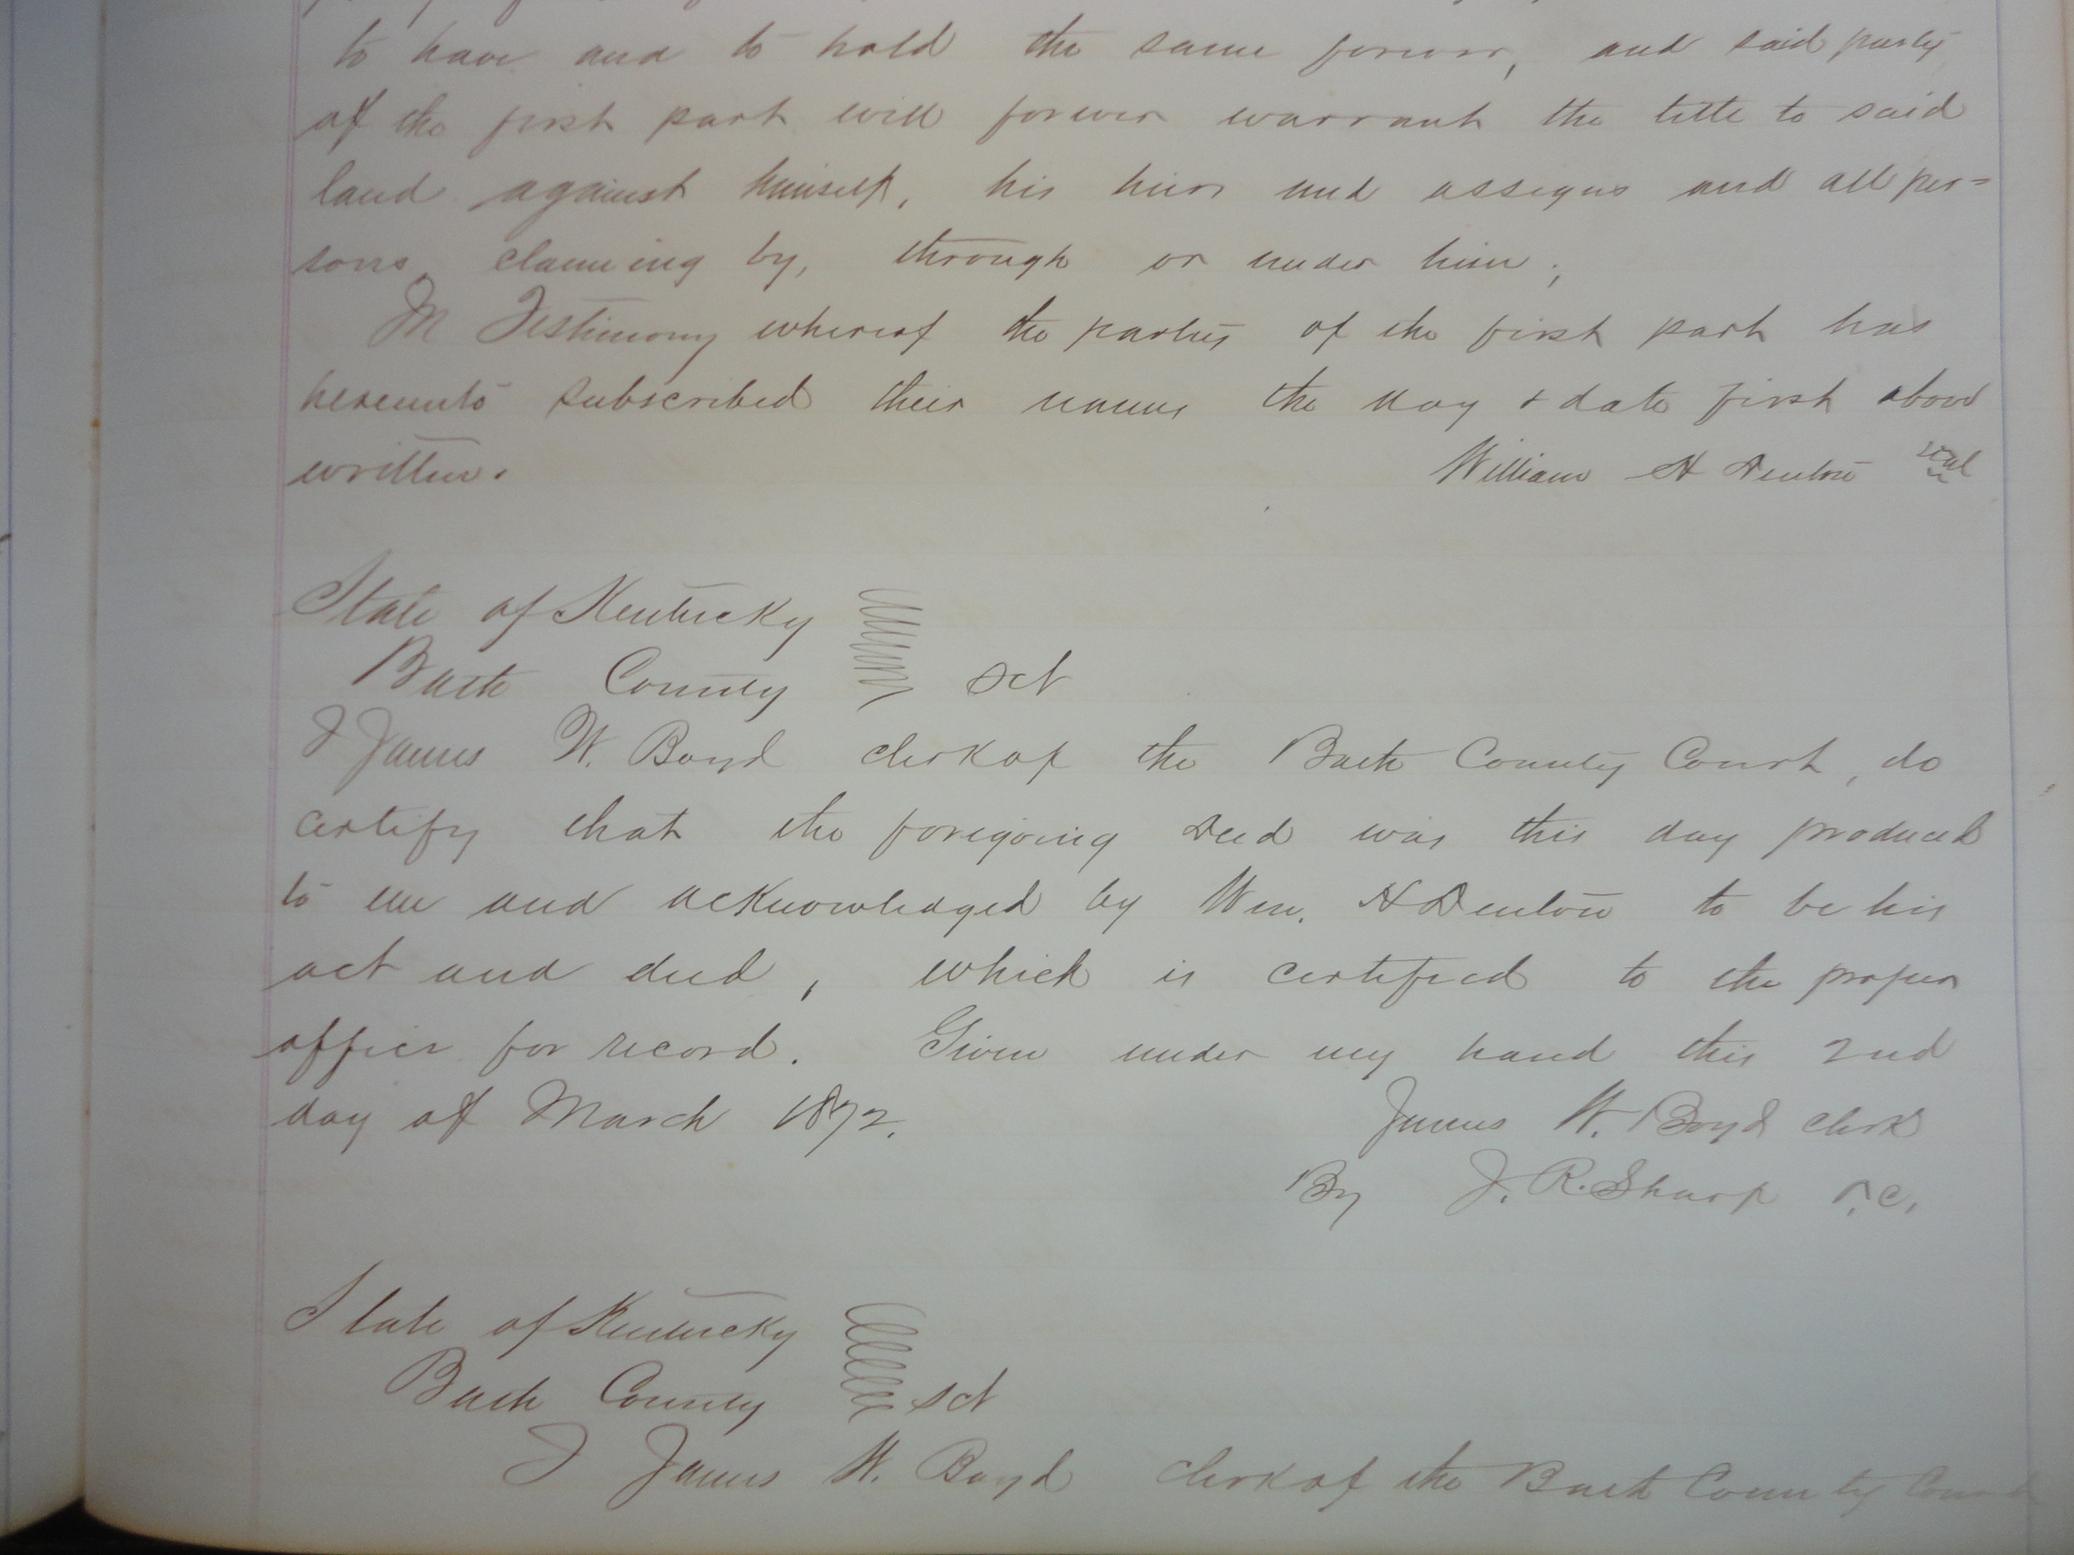 to have and to hold the same forever, and said party
of the first part will forever warrant the title to said
land against himself, his heirs and assigns and all per=
sons claiming by, through or under him;
In Testimony whereof the parties of the first part has
hereunto subscribed their names the day + date first above
written. William H Denton seal
State of Kentucky
Bath County sct
I James W. Boyd clerk of the Bath County Court, do
certify that the foregoing Deed was this day produced
to me and acknowledged by Wm. H Denton to be his
act and deed, which is certified to the proper
office for record. Given under my hand this 2nd
day of March 1872. James W. Boyd clerk
By J. R. Sharp D.C.
State of Kentucky
Bath County sct
I James W. Boyd clerk of the Bath County Court